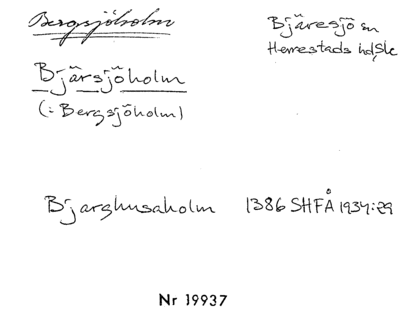 Bergsjöholm
Bjäresjö sn
Herrestads hd, Sk
Bjärsjöholm
(= Bergsjöholm)
Bjarghusaholm 1386 SHFÅ 1934:29
Nr 19937